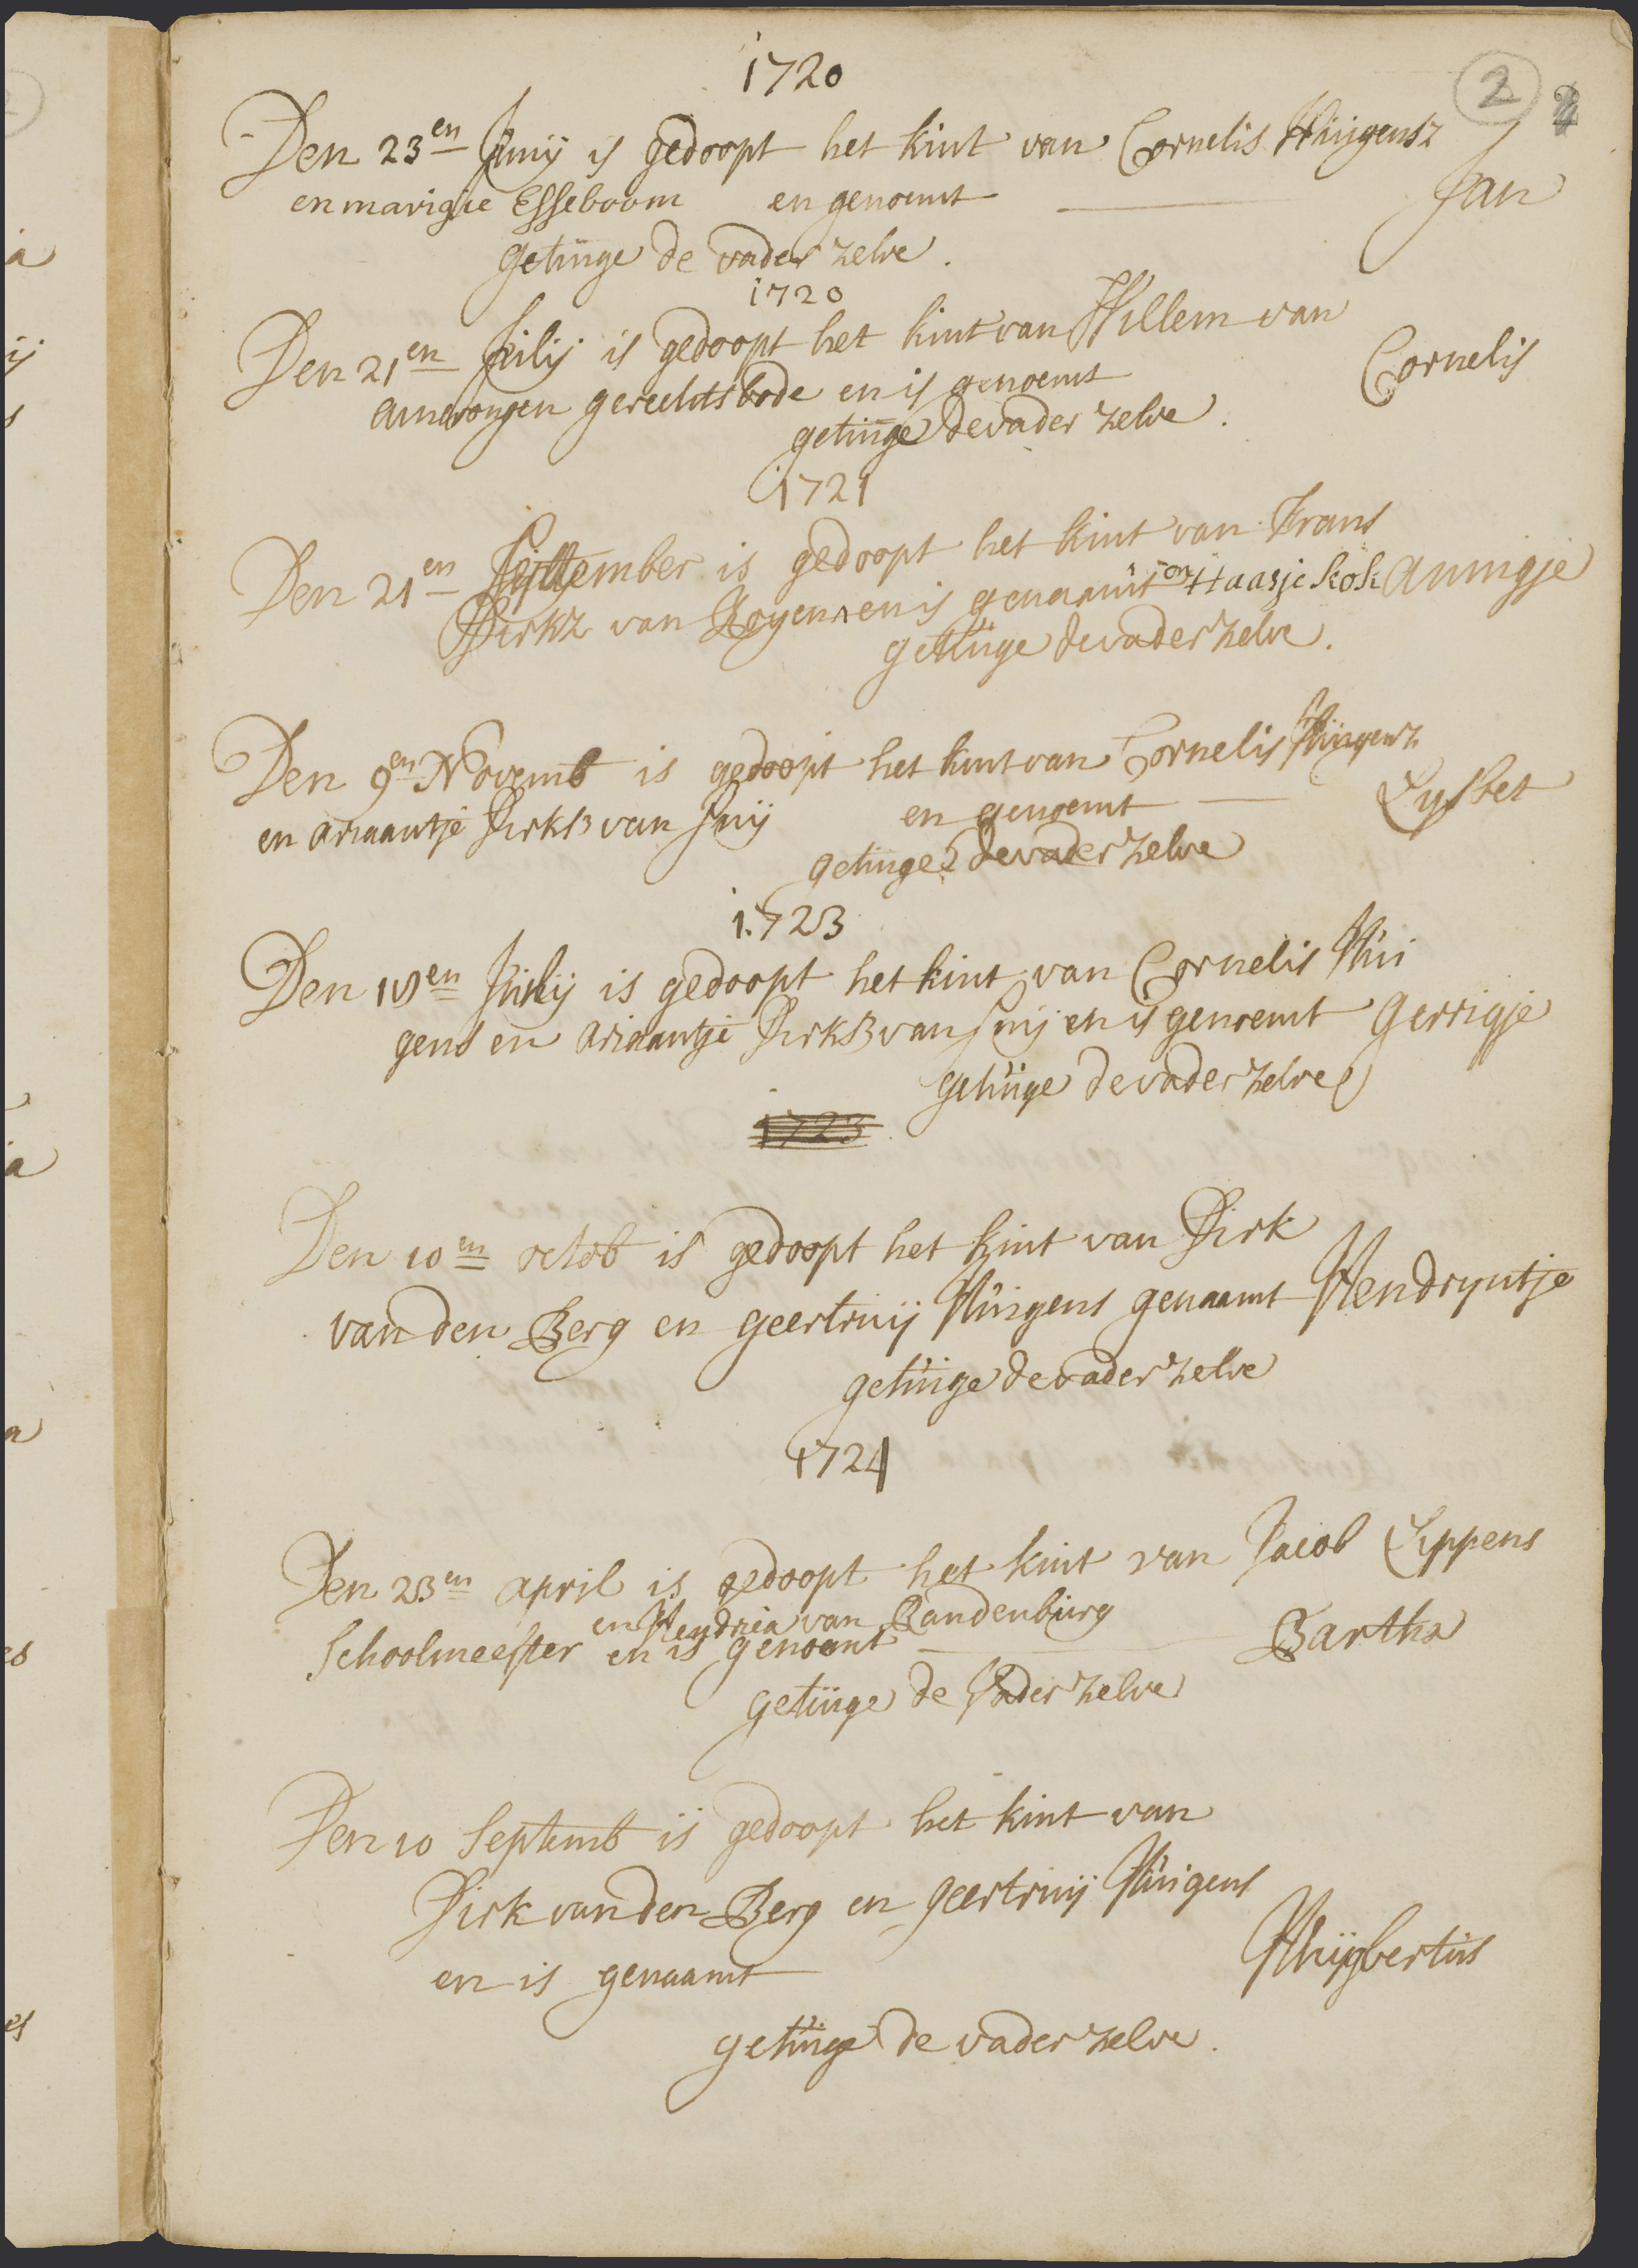 1720
2
Den 23en Junij is gedoopt het kint van Cornelis Huijgensz
en marigie Esseboom en genoemt Jan
getuige de vader zelve.
1720
Den 21en Julij is gedoopt het kint van Willem van
amerongen gerechtsbode en is genoemt Cornelis
getuige de vader zelve.
1721
Den 21en September is gedoopt het kint van Frans
Dirkz van Royen en is genaamt en Haasje Kok Annigje
getuige de vader zelve.
Den 9en Novemb is gedoopt het kint van Cornelis Huijgensz
en ariaantje Dirks van Suij en genoemt Lysbet
getuige de vader zelve
1723
Den en Julij is gedoopt het kint van Cornelis Hui
gens en ariaantje Dirks van Suij en is genoemt Gerrigje
getuige de vader zelve
1723
Den 10en octob is gedoopt het kint van Dirk
van den Berg en geertruij Huigens genaamt Hendryntje
getuige de vader zelve
1724
Den 23en april is gedoopt het kint van Jacob Lippens
en Hendrica van Bandenburg
Schoolmeester en is genoemt Bartha
getuige de Vader zelve
Den 10 Septemb is gedoopt het kint van
Dirk van den Berg en geertruij Huigens
en is genaamt Huijbertus
getuige de vader zelve.